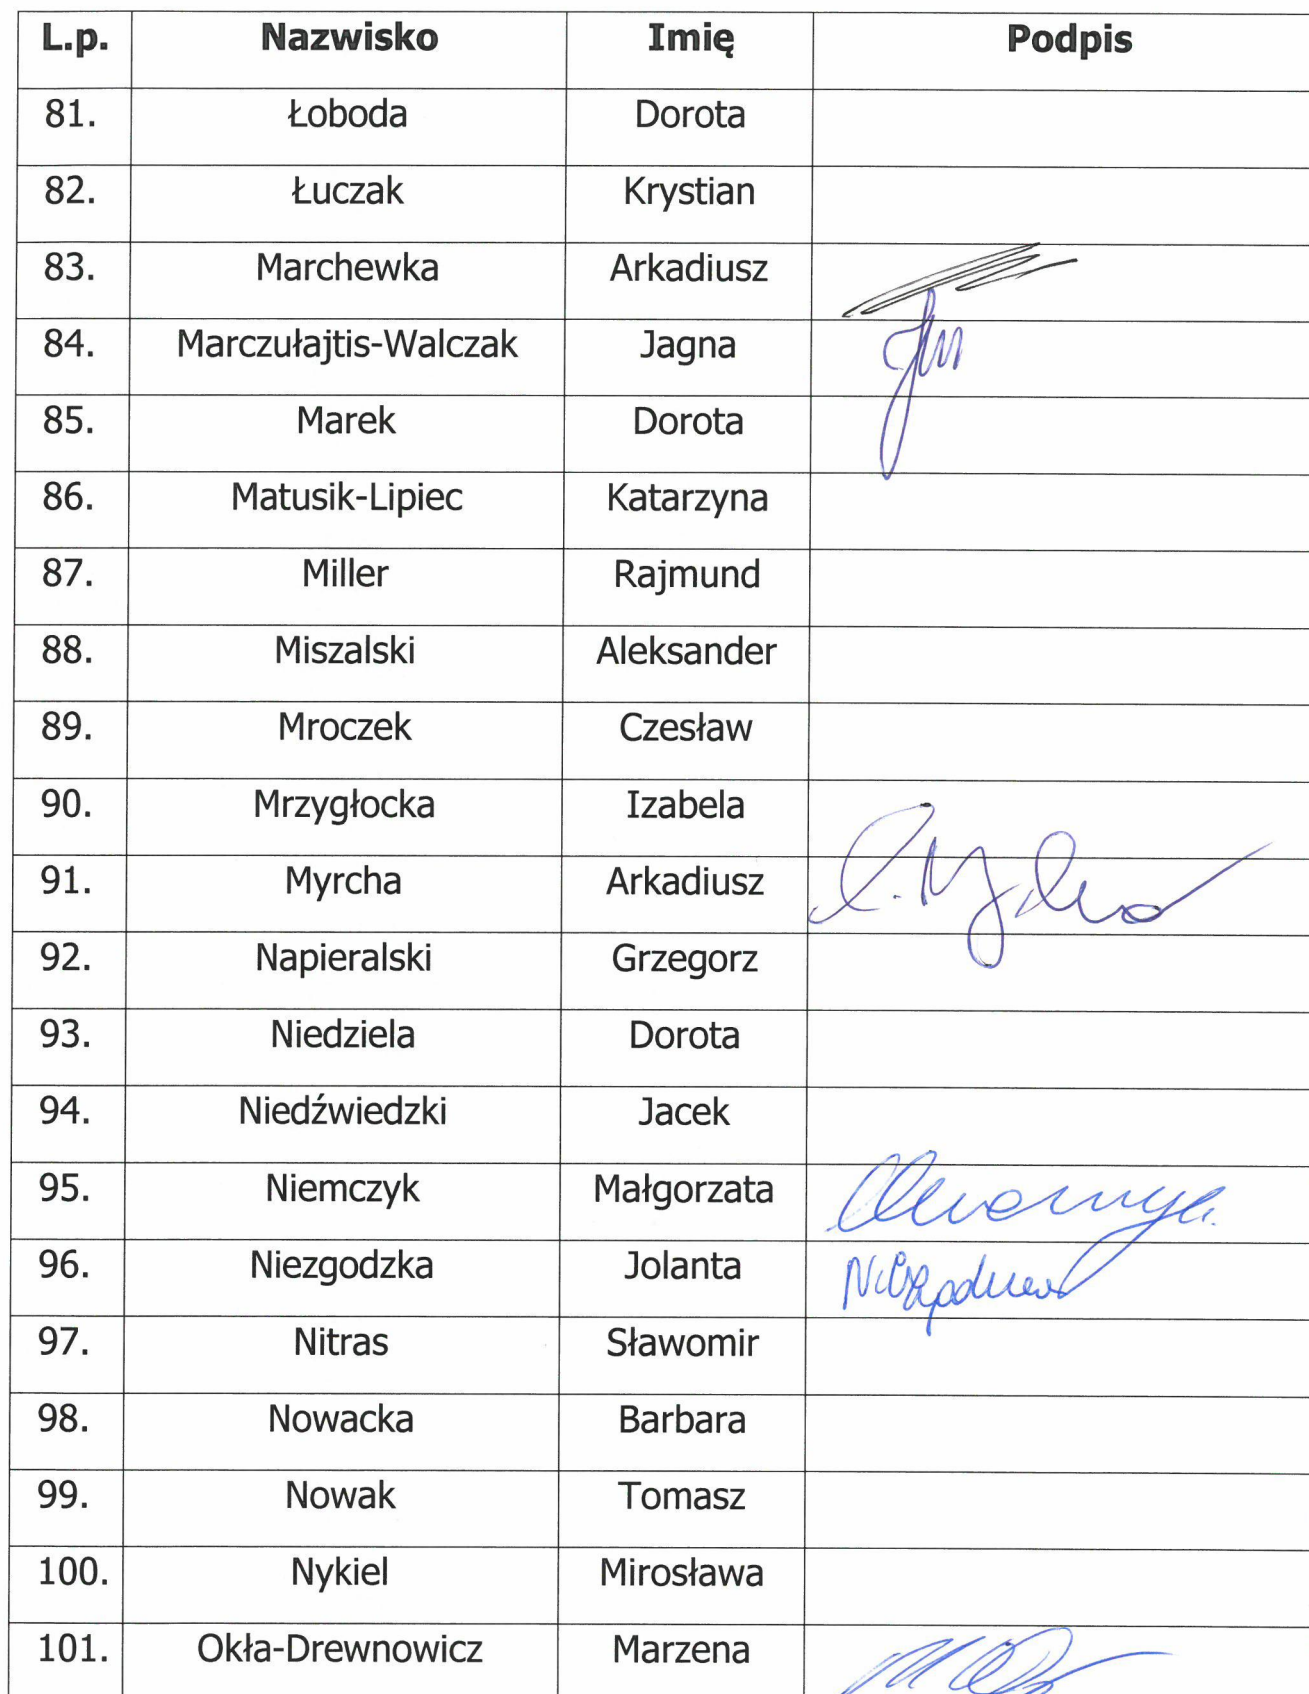 L.p. Nazwisko Imię Podpis
81. Łoboda Dorota
82. Łuczak Krystian
83. Marchewka Arkadiusz
84. Marczułajtis-Walczak Jagna
85. Marek Dorota
86. Matusik-Lipiec Katarzyna
87. Miller Rajmund
88. Miszalski Aleksander
89. Mroczek Czesław
90. Mrzygłocka Izabela
91. Myrcha Arkadiusz
92. Napieralski Grzegorz
93. Niedziela Dorota
94. Niedźwiedzki Jacek
95. Niemczyk Małgorzata
96. Niezgodzka Jolanta
97. Nitras Sławomir
98. Nowacka Barbara
99. Nowak Tomasz
100. Nykiel Mirosława
101. Okła-Drewnowicz Marzena